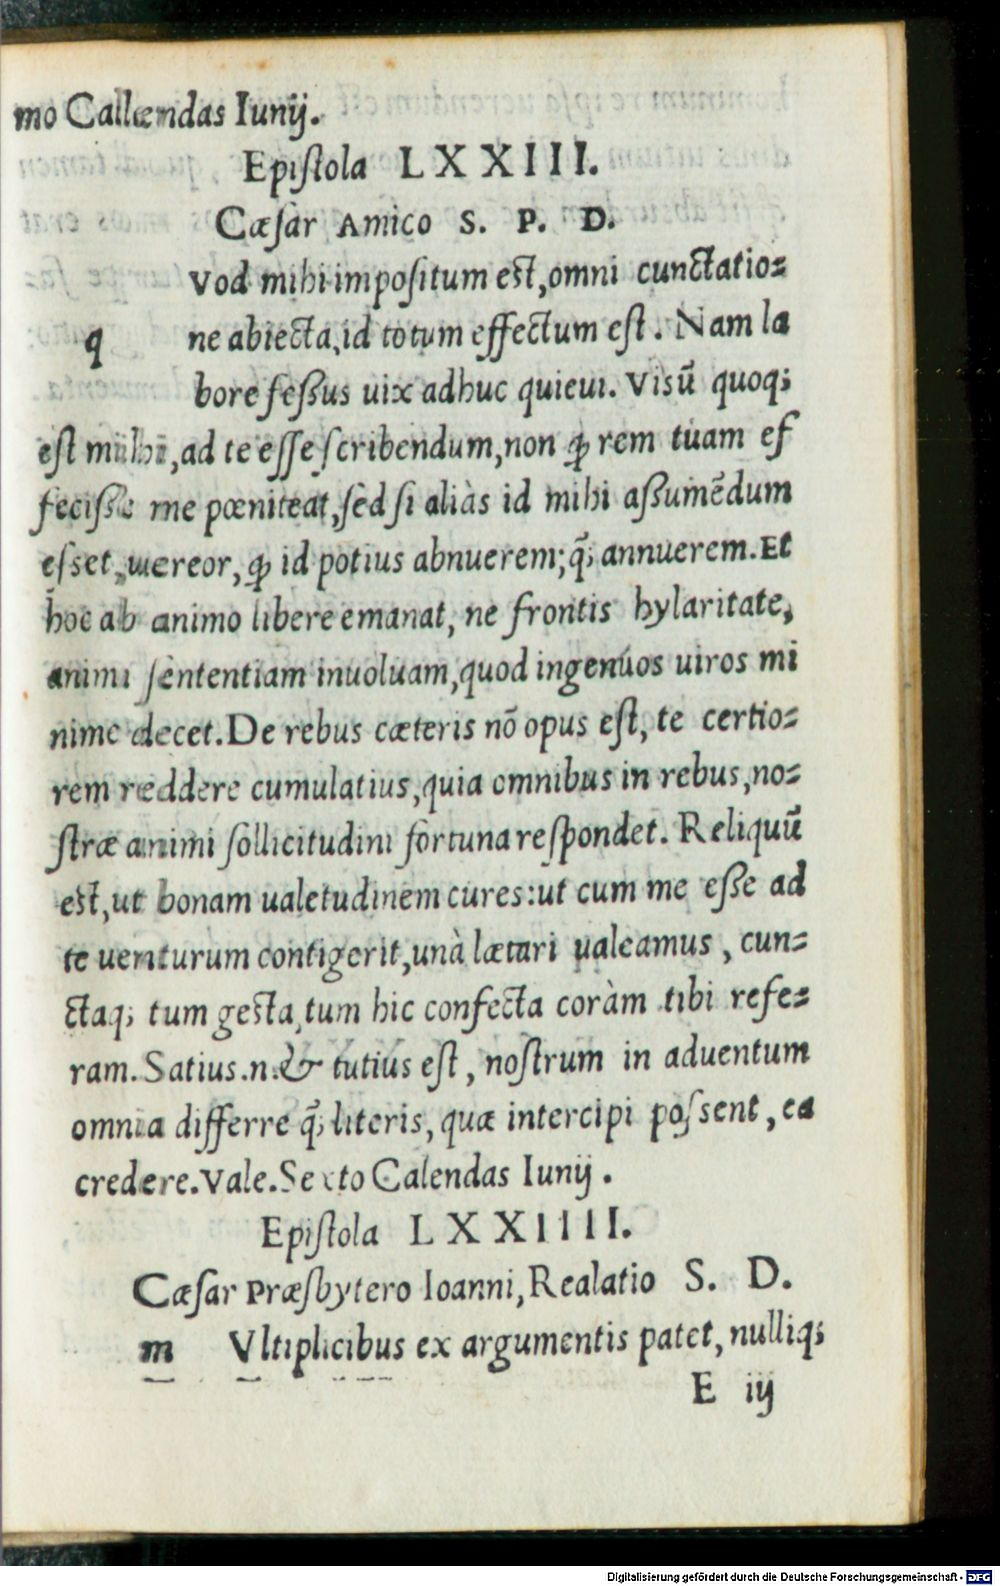 mo Calendas Iunij.
Epistola LXXIII.
Cæsar Amico S. P. D.
Vod mihi impositum est, omni cunctatio=
q ne abiecta, id totum effectum est. Nam la
bore fessus uix adhuc quieui. Visū quoq;
est mihi, ad te esse scribendum, non ꝙ rem tuam ef
fecisse me pœniteat, sed si aliàs id mihi assumēdum
esset, uereor, ꝙ id potius abnuerem; q̄; annuerem. Et
hoc ab animo libere emanat, ne frontis hylaritate,
animi sententiam inuoluam, quod ingenuos uiros mi
nime decet. De rebus cæteris nō opus est, te certio=
rem reddere cumulatius, quia omnibus in rebus, no=
stræ animi sollicitudini fortuna respondet. Reliquū
est, ut bonam ualetudinem cures: ut cum me esse ad
te uenturum contigerit, unà lætari ualeamus, cun=
ctaq; tum gesta, tum hic confecta coràm tibi refe=
ram. Satius .n. & tutius est, nostrum in aduentum
omnia differre q̄; literis, quæ intercipi possent, ea
credere. Vale. Sexto Calendas Iunij.
Epistola LXXIIII.
Cæsar Præsbytero Ioanni, Realatio S. D.
m Vltiplicibus ex argumentis patet, nulliq;
E iij
Digitalisierung gefördert durch die Deutsche Forschungsgemeinschaft - DFG